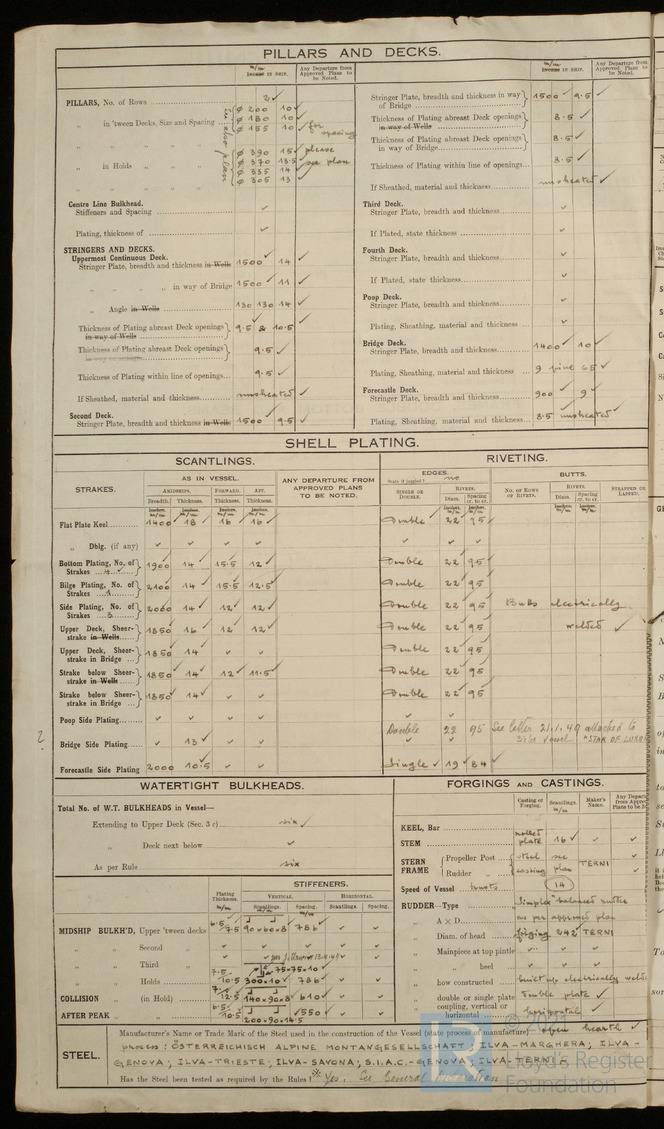 PILLARS AND DECKS.
m/m Inches in Ship. Any Departure from Approved Plans to be Noted.
PILLARS, No. of Rows 2 ✓
" in 'tween Decks, Size and Spacing ø 200 10 ✓
ø 180 10 ✓
ø 155 10 ✓ for spacing
ø 390 15 ✓ please
" in Holds " " ø 370 13.5 ✓ see plan
ø 335 14
ø 305 13 ✓
see also plan
Centre Line Bulkhead.
Stiffeners and Spacing ✓
Plating, thickness of ✓
STRINGERS AND DECKS.
Uppermost Continuous Deck.
Stringer Plate, breadth and thickness in Wells 1500 ✓ 14 ✓
" " " " in way of Bridge 1500 ✓ 11 ✓
" Angle in Wells 130 130 14 ✓
Thickness of Plating abreast Deck openings in way of Wells 9.5 & 10.5 ✓
Thickness of Plating abreast Deck openings 9.5 ✓
Thickness of Plating within line of openings... 9.5 ✓
If Sheathed, material and thickness unsheated ✓
Second Deck.
Stringer Plate, breadth and thickness in Wells 1500 ✓ 9.5 ✓
m/m Inches in Ship. Any Departure from Approved Plans to be Noted.
Stringer Plate, breadth and thickness in way of Bridge 1500 ✓ 9.5 ✓
Thickness of Plating abreast Deck openings in way of Wells 8.5 ✓
Thickness of Plating abreast Deck openings in way of Bridge 8.5 ✓
Thickness of Plating within line of openings... 8.5 ✓
If Sheathed, material and thickness unsheated ✓
Third Deck.
Stringer Plate, breadth and thickness ✓
If Plated, state thickness ✓
Fourth Deck.
Stringer Plate, breadth and thickness ✓
If Plated, state thickness ✓
Poop Deck.
Stringer Plate, breadth and thickness ✓
Plating, Sheathing, material and thickness ... ✓
Bridge Deck.
Stringer Plate, breadth and thickness 1400 ✓ 10 ✓
Plating, Sheathing, material and thickness ... 9 pine 65 ✓
Forecastle Deck.
Stringer Plate, breadth and thickness 900 ✓ 9 ✓
Plating, Sheathing, material and thickness... 8.5 unsheated ✓
SHELL PLATING.
SCANTLINGS.
RIVETING.
STRAKES. AS IN VESSEL. ANY DEPARTURE FROM APPROVED PLANS TO BE NOTED.
EDGES. BUTTS.
State if joggled? no
Amidships. Forward. Aft.
Breadth. Thickness. Thickness. Thickness.
Single or Double. Rivets. Diam. Spacing cr. to cr. No. of Rows of Rivets. Rivets. Diam. Spacing cr. to cr. Strapped or Lapped.
Flat Plate Keel 1400 ✓ 18 ✓ 16 ✓ 16 ✓ Double 22 95
" Dblg. (if any) ✓ ✓ ✓ ✓ ✓ ✓ ✓
Bottom Plating, No. of Strakes 4 1900 14 ✓ 15.5 12 ✓ Double 22 95
Bilge Plating, No. of Strakes 1 2100 14 ✓ 15.5 12.5 ✓ Double 22 95
Side Plating, No. of Strakes 3 2060 14 ✓ 12 ✓ 12 ✓ Double 22 95 Butts electrically
Upper Deck, Sheerstrake in Wells 1850 16 ✓ 12 12 ✓ Double 22 95 welted ✓
Upper Deck, Sheerstrake in Bridge 1850 14 ✓ ✓ ✓ Double 22 95
Strake below Sheerstrake in Wells 1850 14 ✓ 12 ✓ 11.5 ✓ Double 22 95
Strake below Sheerstrake in Bridge 1850 14 ✓ ✓ ✓ Double 22 95
Poop Side Plating ✓ ✓ ✓ ✓ ✓ ✓
2 Bridge Side Plating 13 ✓ ✓ ✓ Double 22 95 See letter 21.1.49 attached to
Sister Vessel "STAR OF LUXOR
Forecastle Side Plating 2000 10.5 ✓ ✓ Single ✓ 19 ✓ 84 ✓
WATERTIGHT BULKHEADS.
Total No. of W.T. BULKHEADS in Vessel—
Extending to Upper Deck (Sec. 3 c) six ✓
" Deck next below ✓
As per Rule six
STIFFENERS.
Plating Thickness. m/m VERTICAL. HORIZONTAL.
Scantlings. Spacing. Scantlings. Spacing.
MIDSHIP BULKH'D, Upper 'tween decks 6.5 7.5 90×60×8 ✓ 786 ✓ ✓
" " Second " ✓ ✓ ✓ ✓ ✓
" " Third " 75×75×10 ✓
" " Holds 7.5 10.5 300×10 ✓ 786 ✓ ✓
COLLISION " (in Hold) 7. 12.5 140×90×8 ✓ 610 ✓ ✓ ✓
AFTER PEAK " " 6.5 10.5 200×90×14.5 ✓ 550 ✓ ✓
FORGINGS AND CASTINGS.
Casting or Forging. Scantlings. m/m Maker's Name.
KEEL, Bar
STEM rolled plate 16 ✓ ✓ ✓
STERN FRAME Propeller Post steel see TERNI ✓
Rudder " casting plan ✓
Speed of Vessel knots 14
RUDDER—Type "Simplex" balanced rudder
" A × D as per approved plan
" Diam. of head forging 242 TERNI
" Mainpiece at top pintle ✓ ✓ ✓
" " heel ✓ ✓ ✓
" how constructed built up electrically
" double or single plate Double plate ✓
" coupling, vertical or horizontal horizontal ✓
STEEL.
Manufacturer's Name or Trade Mark of the Steel used in the construction of the Vessel (state process of manufacture) open hearth ✓
process: ÖSTERREICHISCH ALPINE MONTANGESELLSCHAFT; ILVA-MARGHERA; ILVA-
GENOVA; ILVA-TRIESTE; ILVA-SAVONA; S.I.A.C.-GENOVA; ILVA-TERNI
Has the Steel been tested as required by the Rules? Yes. See General
Lloyd's Register
Foundation